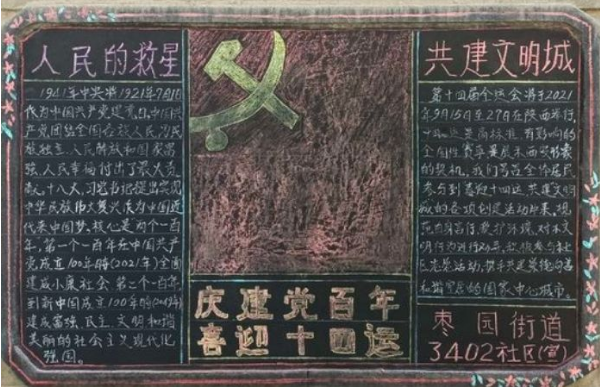 人民的救星
1941年中共将1921年7月1日
作为中国共产党建党日,中国共
产党团结全国各族人民为民
族独立、人民解放和国家富
强、人民幸福付出了最大贡
献,十八大,习总书记提出实现
中华民族伟大复兴成为中国近
代来中国梦,核心是两个一百
年,第一个一百年在中国共产
党成立100年时(2021年)全面
建成小康社会 第二个一百年
到新中国成立100年时(2049年)
建成富强、民主、文明和谐
美丽的社会主义现代化
强国。
庆建党百年
喜迎十四运
共建文明城
第十四届全运会将于2021
年9月15日至27日在陕西举行,
十四运是高标准、有影响的
全国性赛事是展示西安形象
的契机,我们号召全体居民
参与到喜迎十四运 共建文明
城的各项创建活动中来,
和谐宜居的国家中心城市。
枣园街道
3402社区(宣)